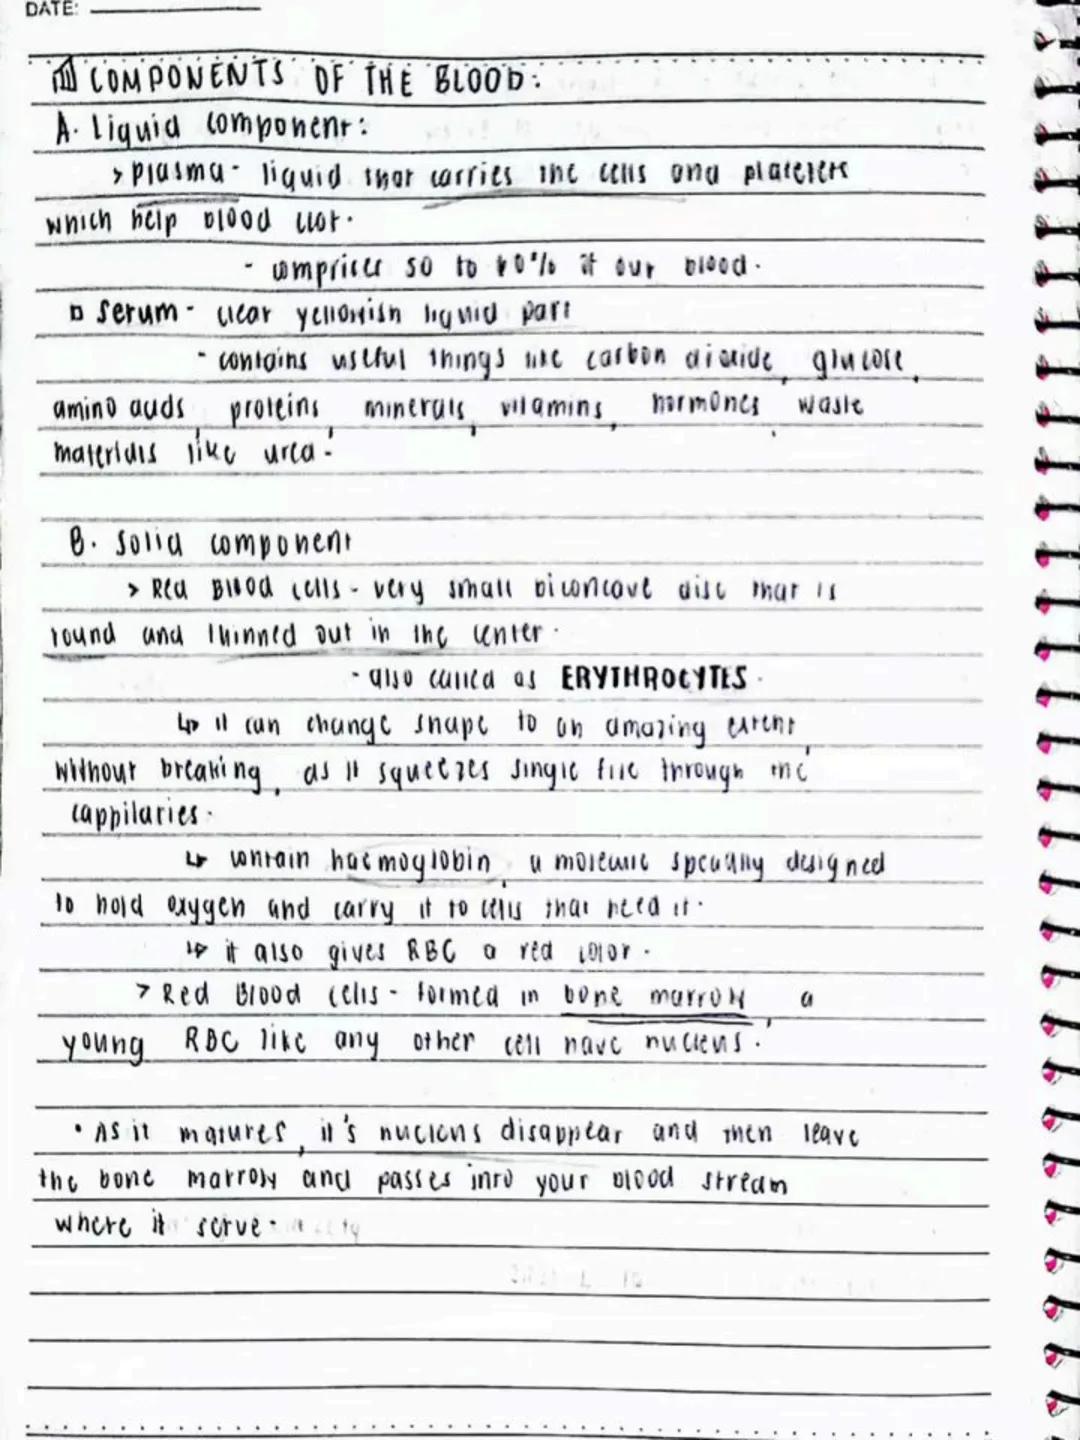 DATE:
COMPONENTS OF THE BLOOD:
A. Liquid component:
> Plasma - liquid that carries the cells and platelets
which help blood clot.
- comprices 50 to 60% of our blood.
Serum - clear yellowish liquid part
- contains useful things like carbon dioxide, glucose,
amino acids, proteins, minerals, vitamins, hormones, waste
materials like urea.
B. Solid component
> Red Blood Cells - very small biconcave disc that is
round and thinned out in the center.
- also called as ERYTHROCYTES.
↳ it can change shape to an amazing extent,
without breaking, as it squeezes single file through the
cappilaries.
↳ contain haemoglobin, a molecule specially designed
to hold oxygen and carry it to cells that need it.
↳ it also gives RBC a red color.
> Red Blood Cells - formed in bone marrow, a
young RBC like any other cell have nucleus.
• As it matures, it's nucleus disappear and then leave
the bone marrow and passes into your blood stream
where it serve.